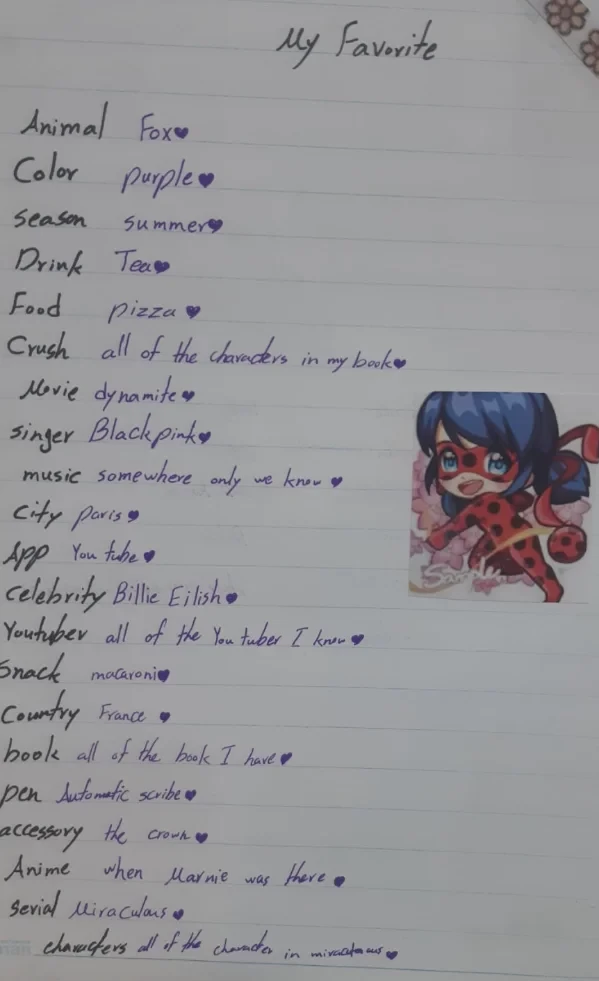 My Favorite
Animal Fox
Color purple
season summer
Drink Tea
Food pizza
Crush all of the characters in my book
Movie dynamite
singer Blackpink
music somewhere only we know
City paris
App You tube
celebrity Billie Eilish
Youtuber all of the You tuber I know
Snack macaroni
Country France
book all of the book I have
pen Automatic scribe
accessory the crown
Anime when Marnie was there
serial Miraculous
characters all of the character in miraculous